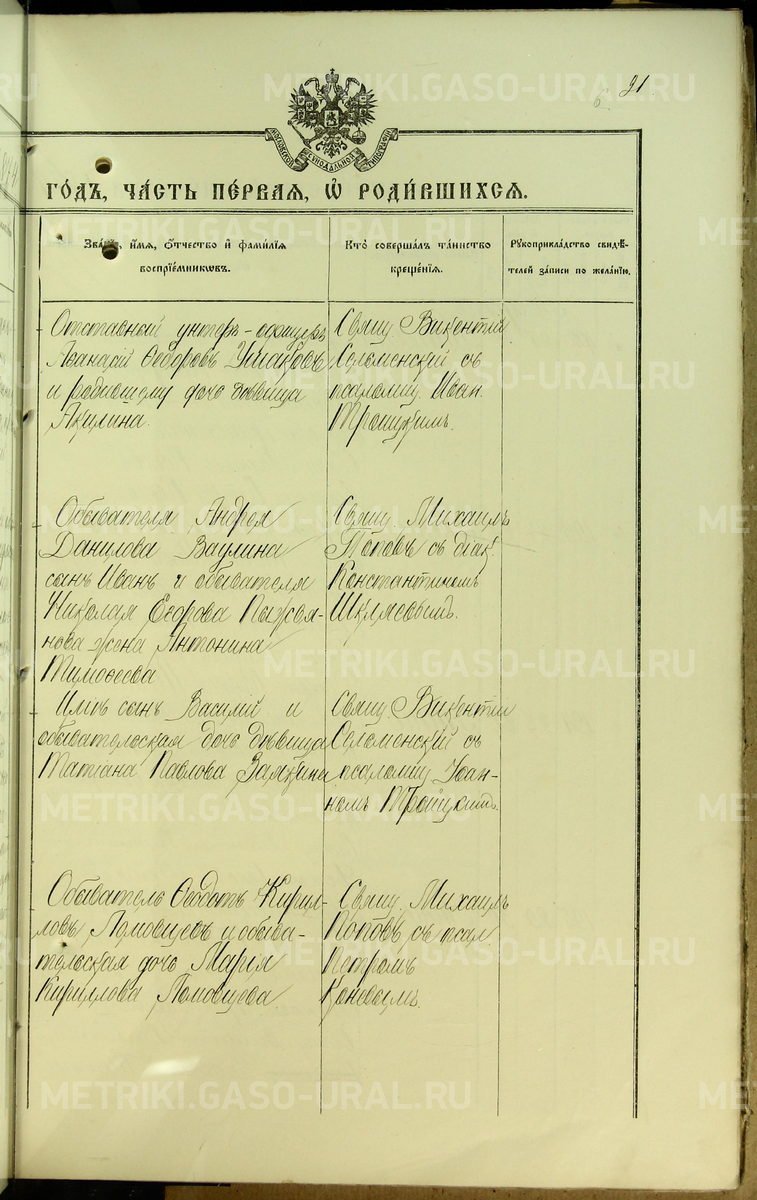 21.
МОСКОВСКОЙ СѴНОДАЛЬНОЙ ТИПОГРАФІИ
ГО́ДЪ, ЧА́СТЬ ПЕ́РВАЯ, Ѡ҆ РОДИ́ВШИХСЯ.
Зва́нїе, и҆́мя, ѻ҆́тчество и҆ фами́лїя
воспрїе́мникѡвъ.
Кто̀ соверша́лъ та́инство
креще́нїя.
Рꙋкоприкла́дство свидѣ́-
телей за́писи по жела́нїю.
Отставный унтеръ-офицеръ
Аѳанасій Ѳедоровъ Ушаковъ
и родившему дочь дѣвица
Акулина.
Свящ. Викентій
Селменскій съ
псаломщ. Иван.
Троицкимъ.
Обывателя Андрея
Данилова Ваулина
сынъ Иванъ и обывателя
Николая Егорова
нова жена Антонина
Тимоѳеева
Свящ. Михаилъ
Поповъ съ діак.
Константиномъ
сынъ Василій и
обывательская дочь дѣвица
Татіана Павлова Замкина
Свящ. Викентій
Селменскій съ
псаломщ. Іоан-
номъ Троицкимъ.
Обыватель Ѳеодотъ Кирил-
ловъ Ломовцевъ и обыва-
тельская дочь Марія
Кириллова Ломовцева.
Свящ. Михаилъ
Поповъ съ псал.
Петромъ
Коневымъ.
METRIKI.GASO-URAL.RU